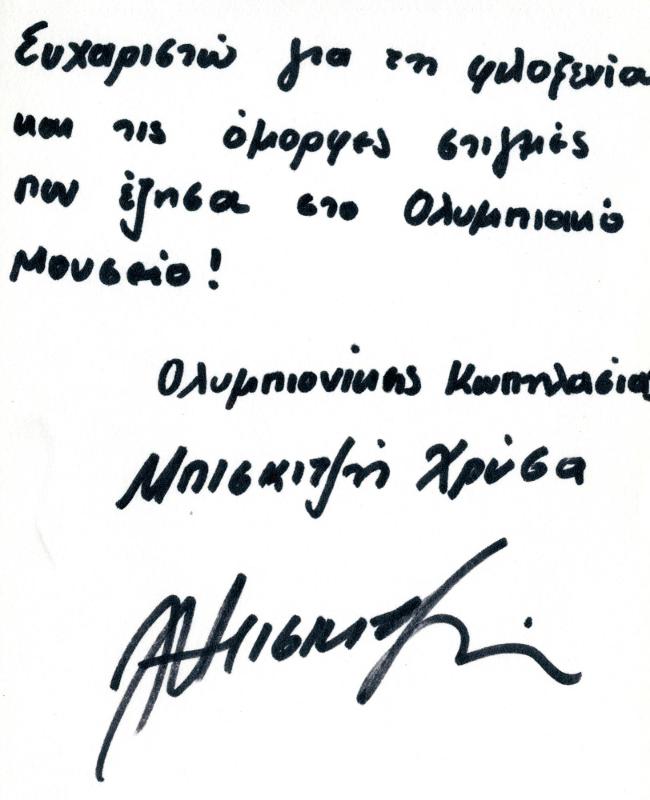 Ευχαριστώ για τη φιλοξενία
και τις όμορφες στιγμές
που έζησα στο Ολυμπιακό
Μουσείο!
Ολυμπιονίκης Κωπηλασίας
Μπισκιτζή Χρύσα
Μπισκιτζή